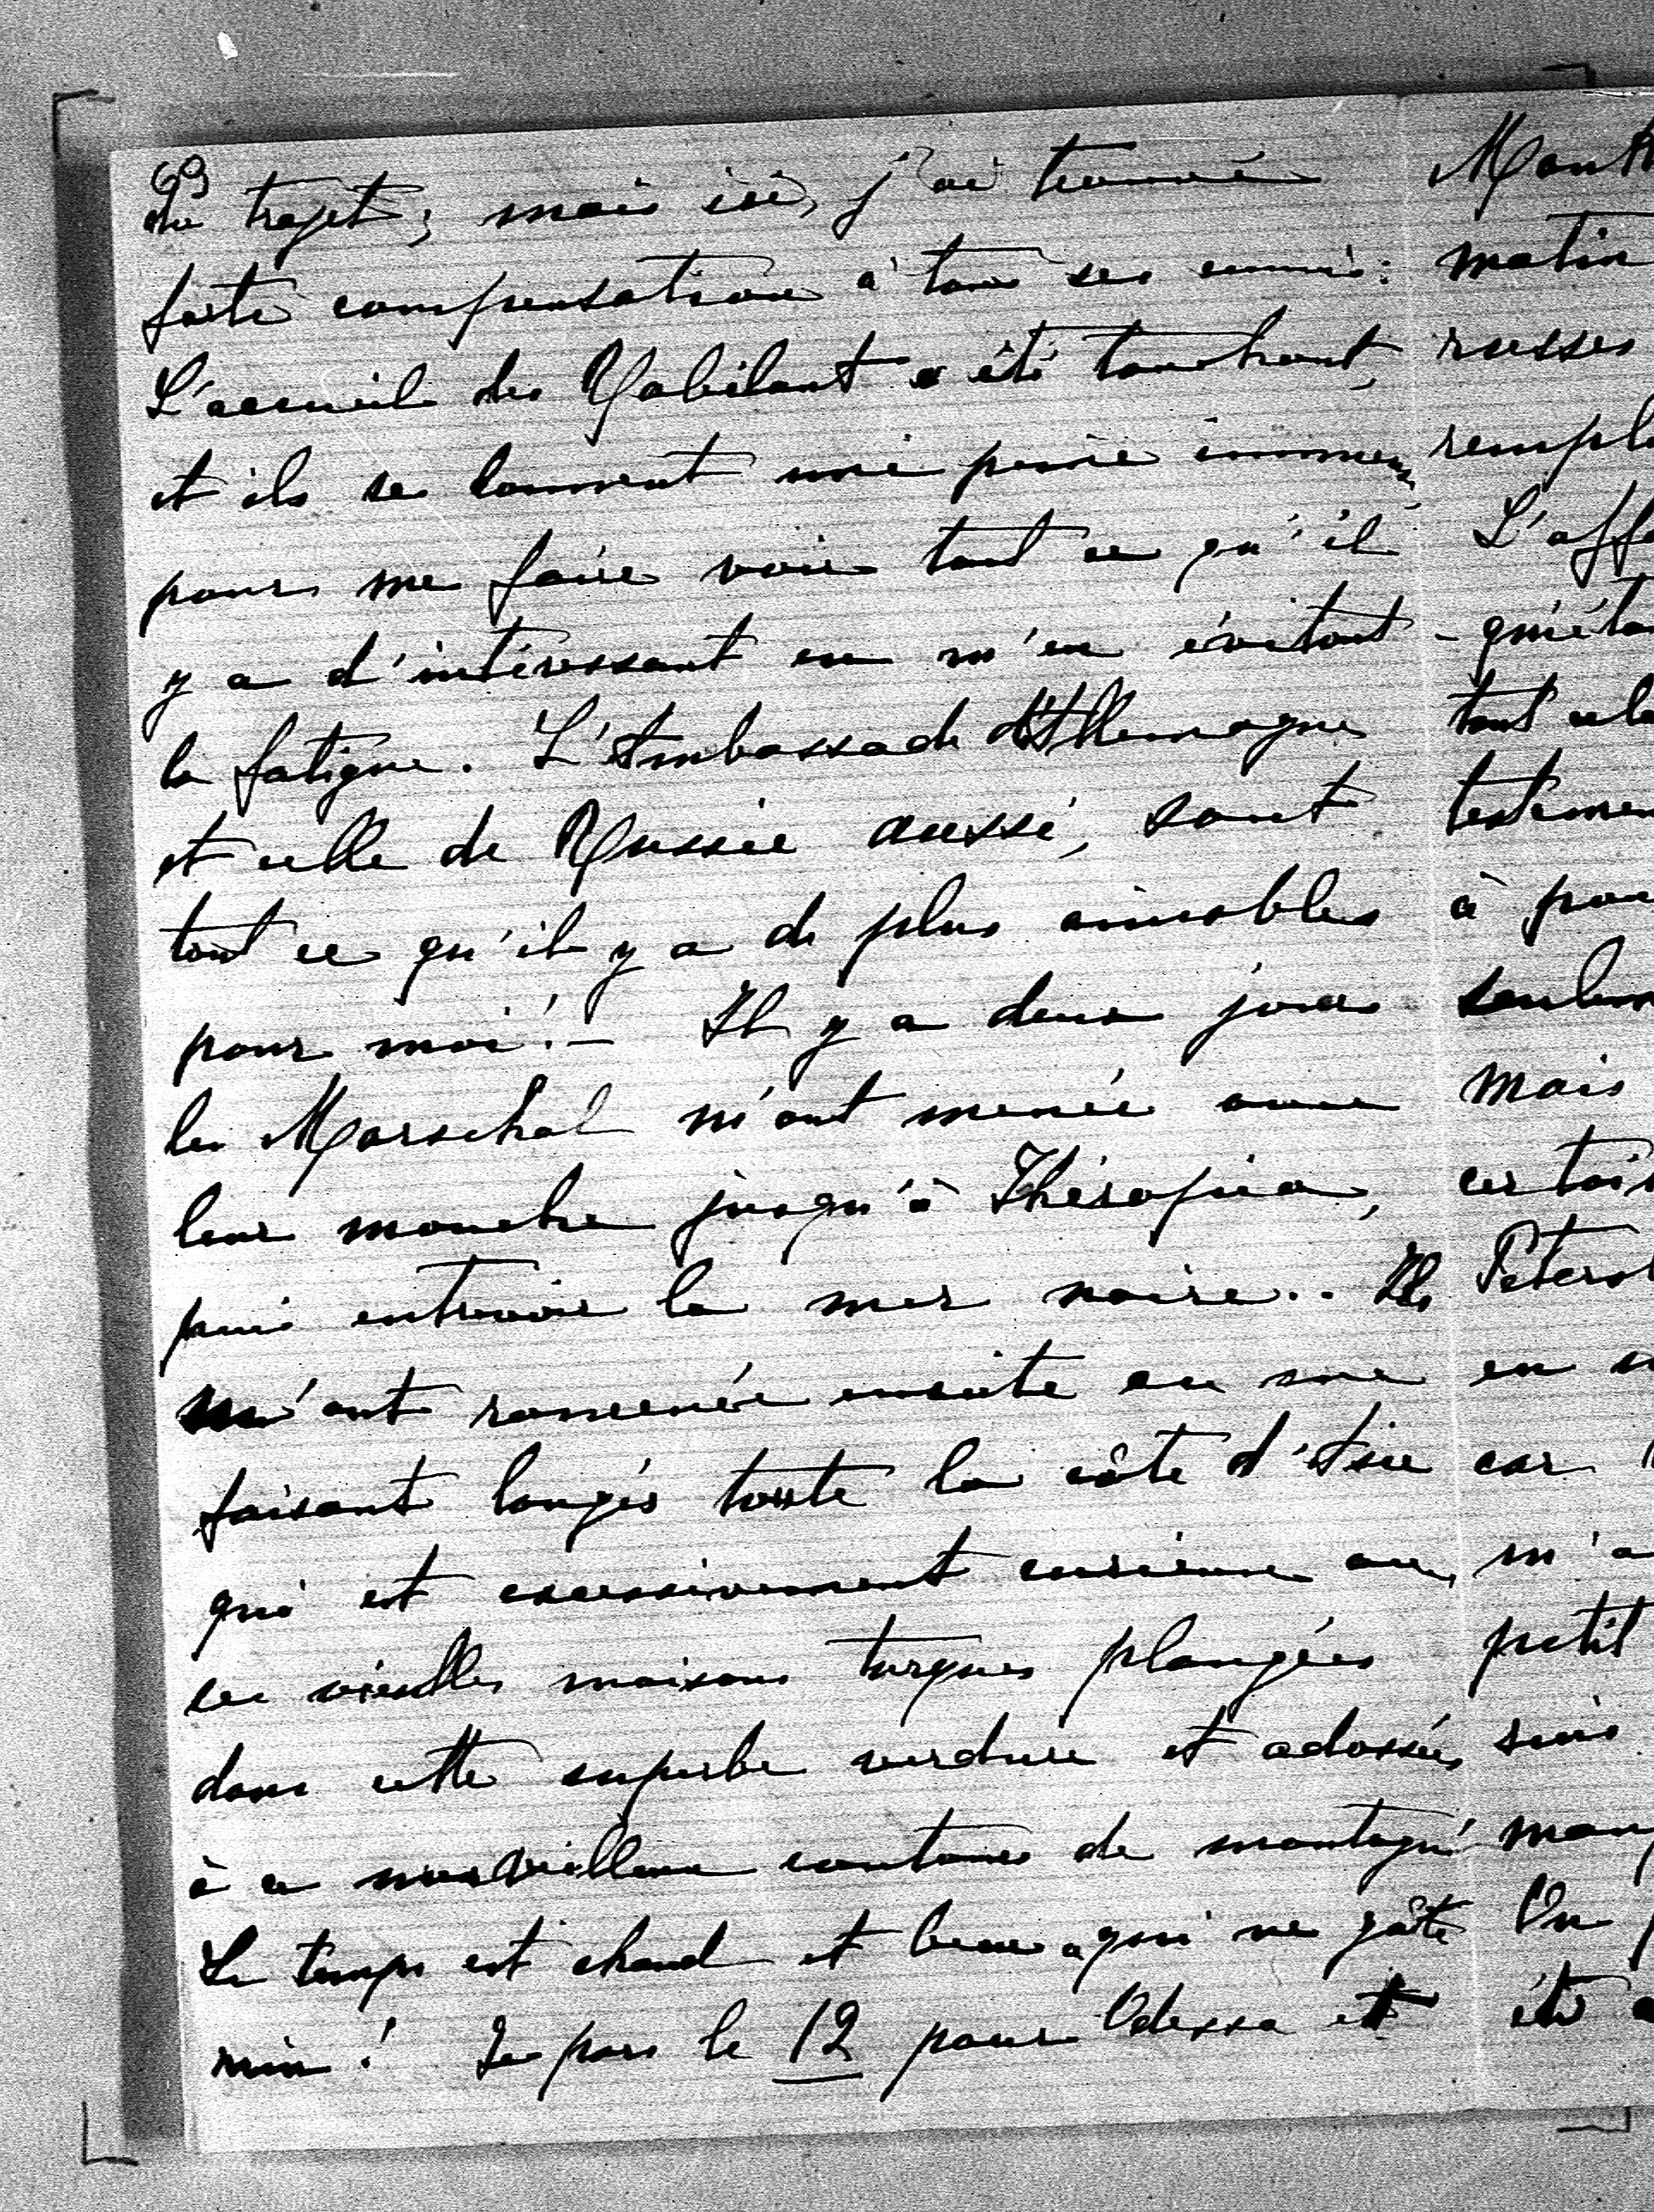 69
du trajet; mais ici, j'ai trouvé
forte compensation à tous ses ennuis:
L'accueil des Robilant a été touchant,
et ils se donnent une peine immense
pour me faire voir tout ce qu'il
y a d'intéressant en m'en évitant
la fatigue. L'Ambassade d'Allemagne
et celle de Russie aussi, sont
tout ce qu'il y a de plus aimables
pour moi! - Il y a deux jours
les Marschal m'ont menée avec
leur mouche jusqu'à Thérapia,
puis entrevoir la mer noire.. Ils
m'ont ramenée ensuite en me
faisant longer toute la côte d'Asie
qui est excessivement curieuse avec
ces vieilles maisons turques plongées
dans cette superbe verdure et adossées
à ce merveilleux contour de montagne.
Le temps est chaud et beau, qui ne gâte
rien! Je pars le 12 pour Odessa et
matin
russes
L'aff
tout cela
à pou
seulem
Mais
certain
Petersb
en
car
m'a
petit
suis
On
été